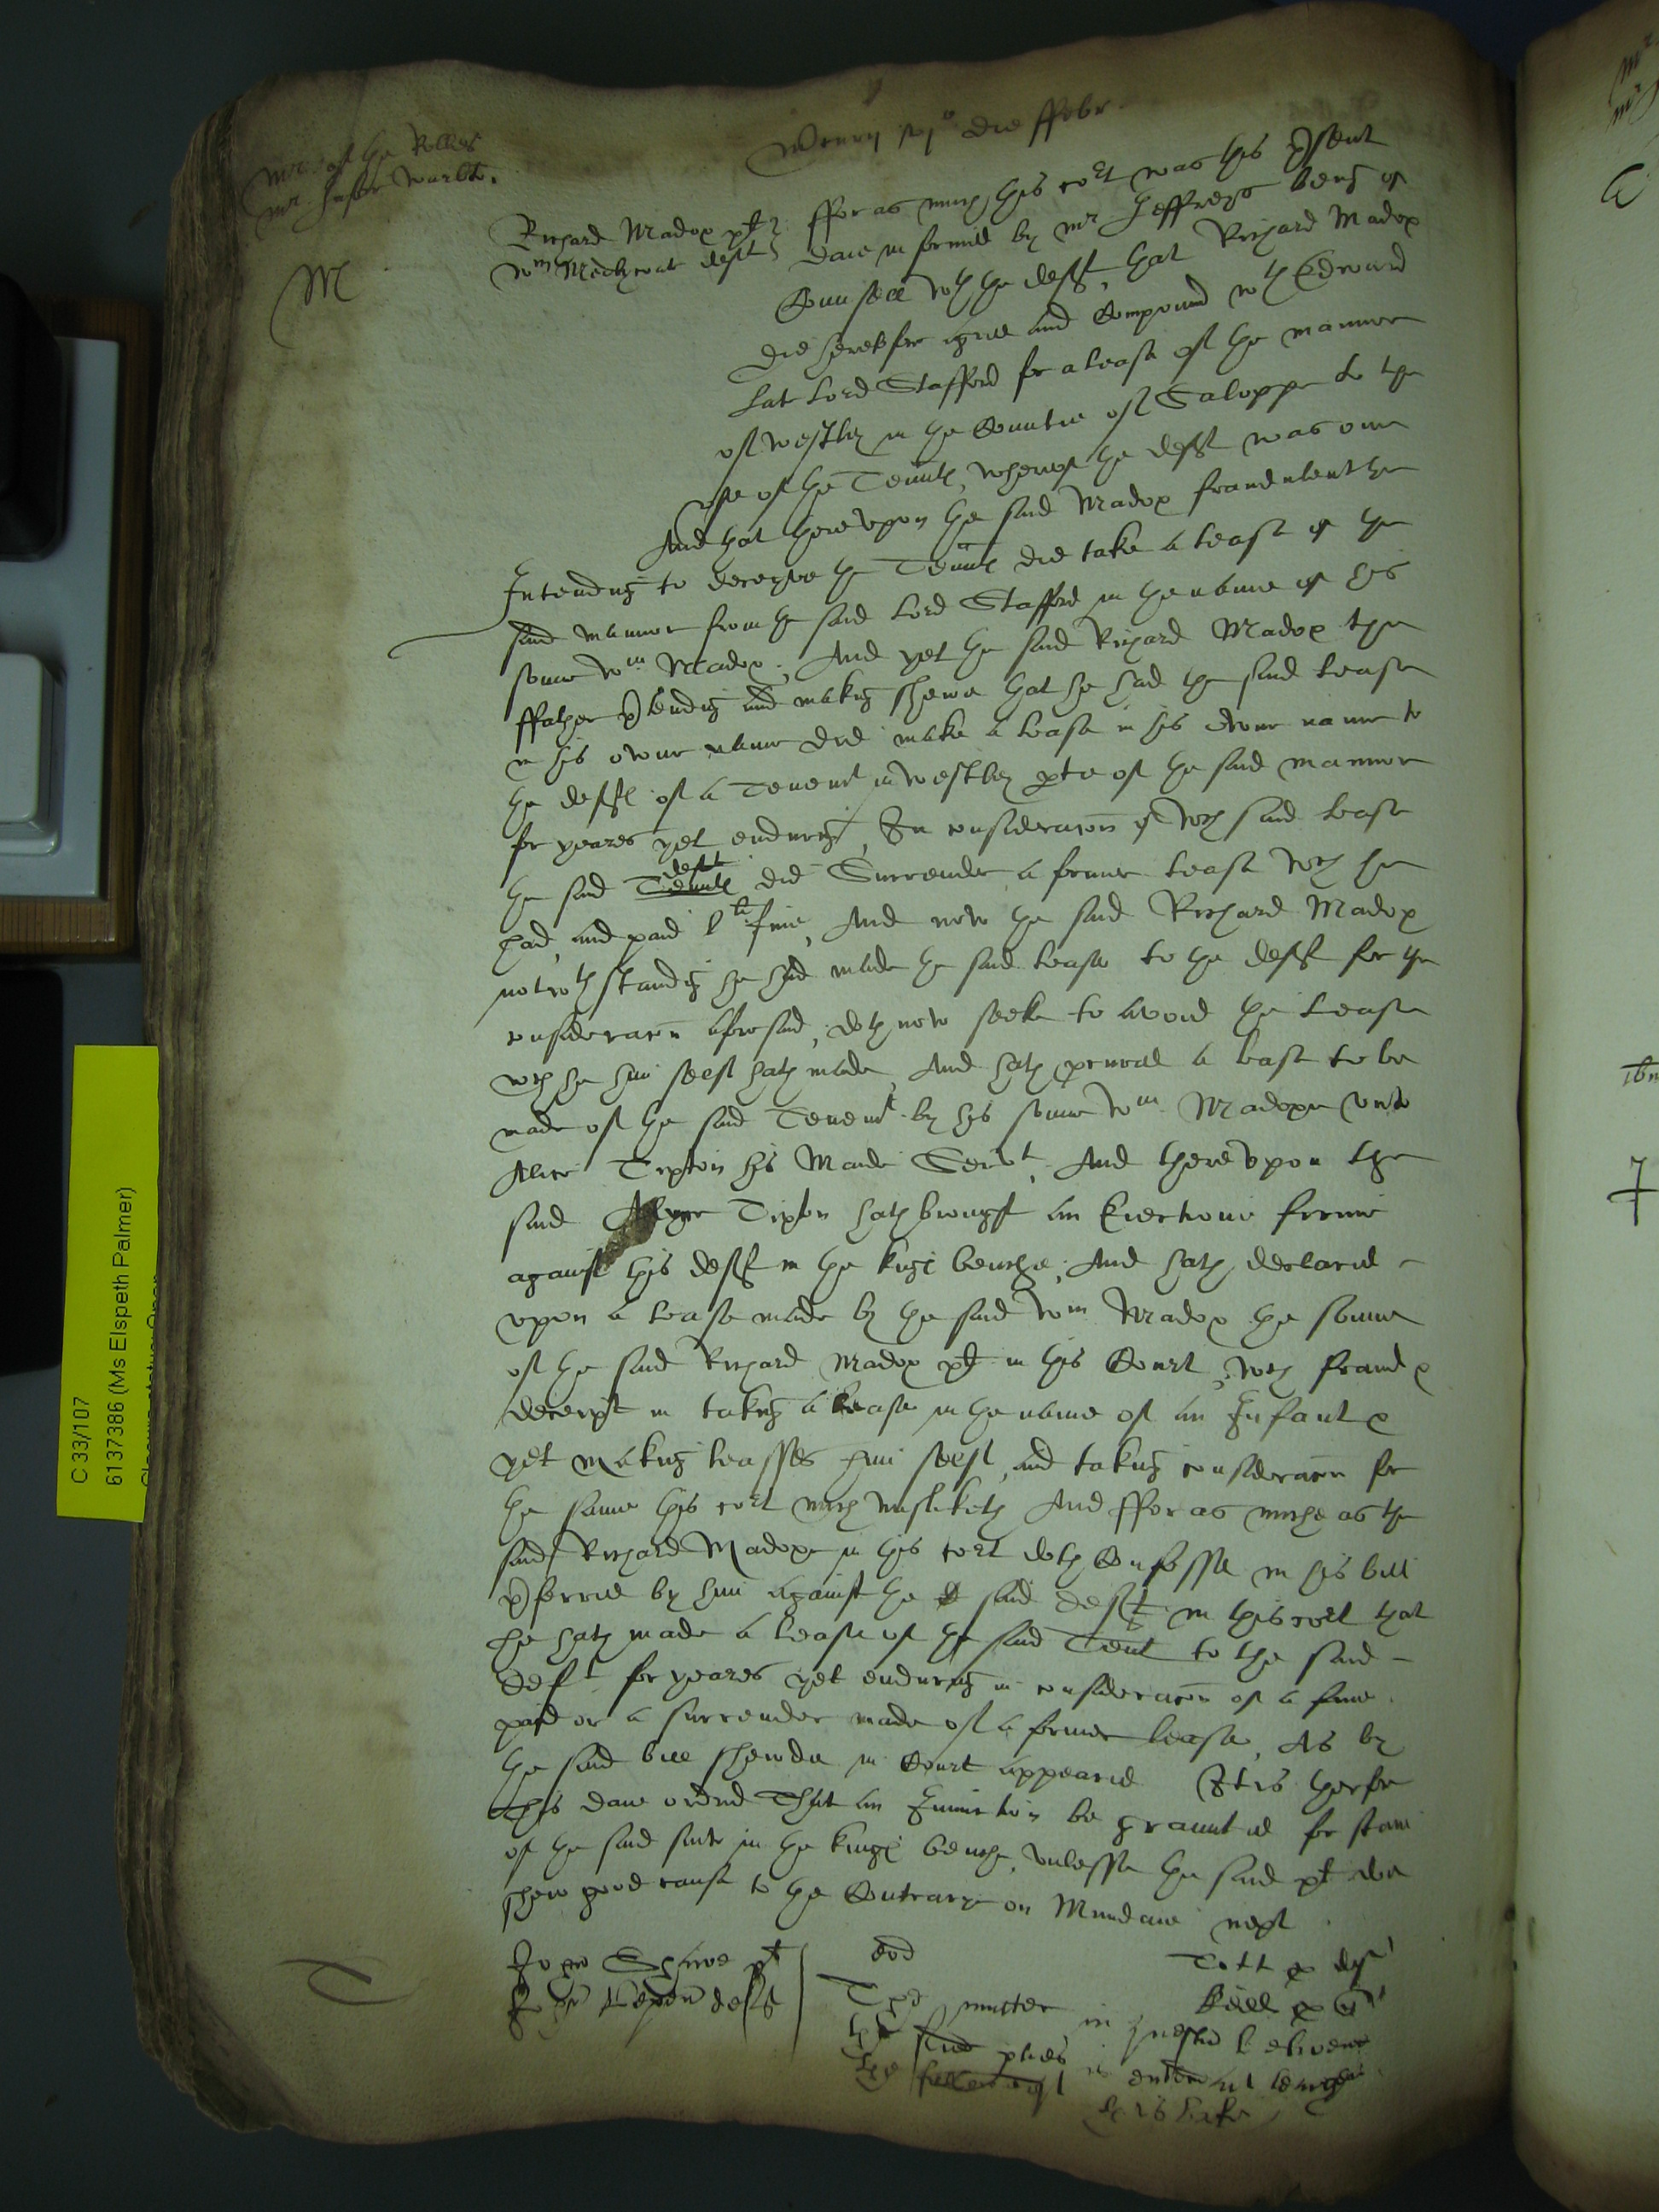 mr of the Rolles
mr Justice
die ffebr
M
Richard Madox plt fforasmuch this cort was this psent
Wm deft daie informed by mr Jeffreys beng of
Counsell wth the deft, that Richard Madox
did heretofore agree and Compound wth Edward
late Lord Stafford for a lease of the mannor
of westley in the Countie of Saloppe to the
use of the Tenntes, wherof the deft was one
And that therevpon the said Madox fraudulentlie
Intendng to deceyve the Tenntes did take a lease of the
said mannor from the said Lord Stafford in the name of his
sonne Wm Madox, And yet the said Richard Madox the
ffather ptendng and makng shewe that he had the said lease
in his owne name did make a lease in his owne name to
the deft of a Tenemt in westley pte of the said mannor
for yeares yet endurng, In consideracon of wch said lease
deft
the said Tenntes did Surrender a former lease wch he
had, and paid lli fine, And now the said Richard Madox
notwthstandng he had made the said lease to the deft for the
consideracon aforesaid, doth now seeke to avoid the lease
wch he him self hath made, And hath procured a lease to be
made of the said Tenemt by his sonne Wm Madoxe vnto
Alice Tipton his Maide Servt, And therevpon the
said Tipton hath brought an Eiectione firme
against this deft in the kings benche, And hath declared
vpon a lease made by the said Wm Madox the sonne
of the said Richard Madox plt in this Court, wch fraude &
deceipt in takng a lease in the name of an Infant &
yet makng leasses him self, and takng consideracon for
the same this cort much misliketh And fforasmuche as the
said Richard Madoxe in this cort doth Confesse in his bill
pferred by him against the said deft in this cort that
he hath made a lease of the said Tent to the said
deft for yeares yet endurng in consideracon of a fine
paid or a surrender made of a former lease, As by
the said bill shewed in Court appeared It is therfore
this daie ordred That an Iniunction be graunted for staie
of the said suite in the kings benche, vnlesse the said plt doe
shew good cause to the Contrarye on Mundaie next
T
John plt eod Tott p deft
John deft Kell p q
The matter in questio betwene
the said pties is
the